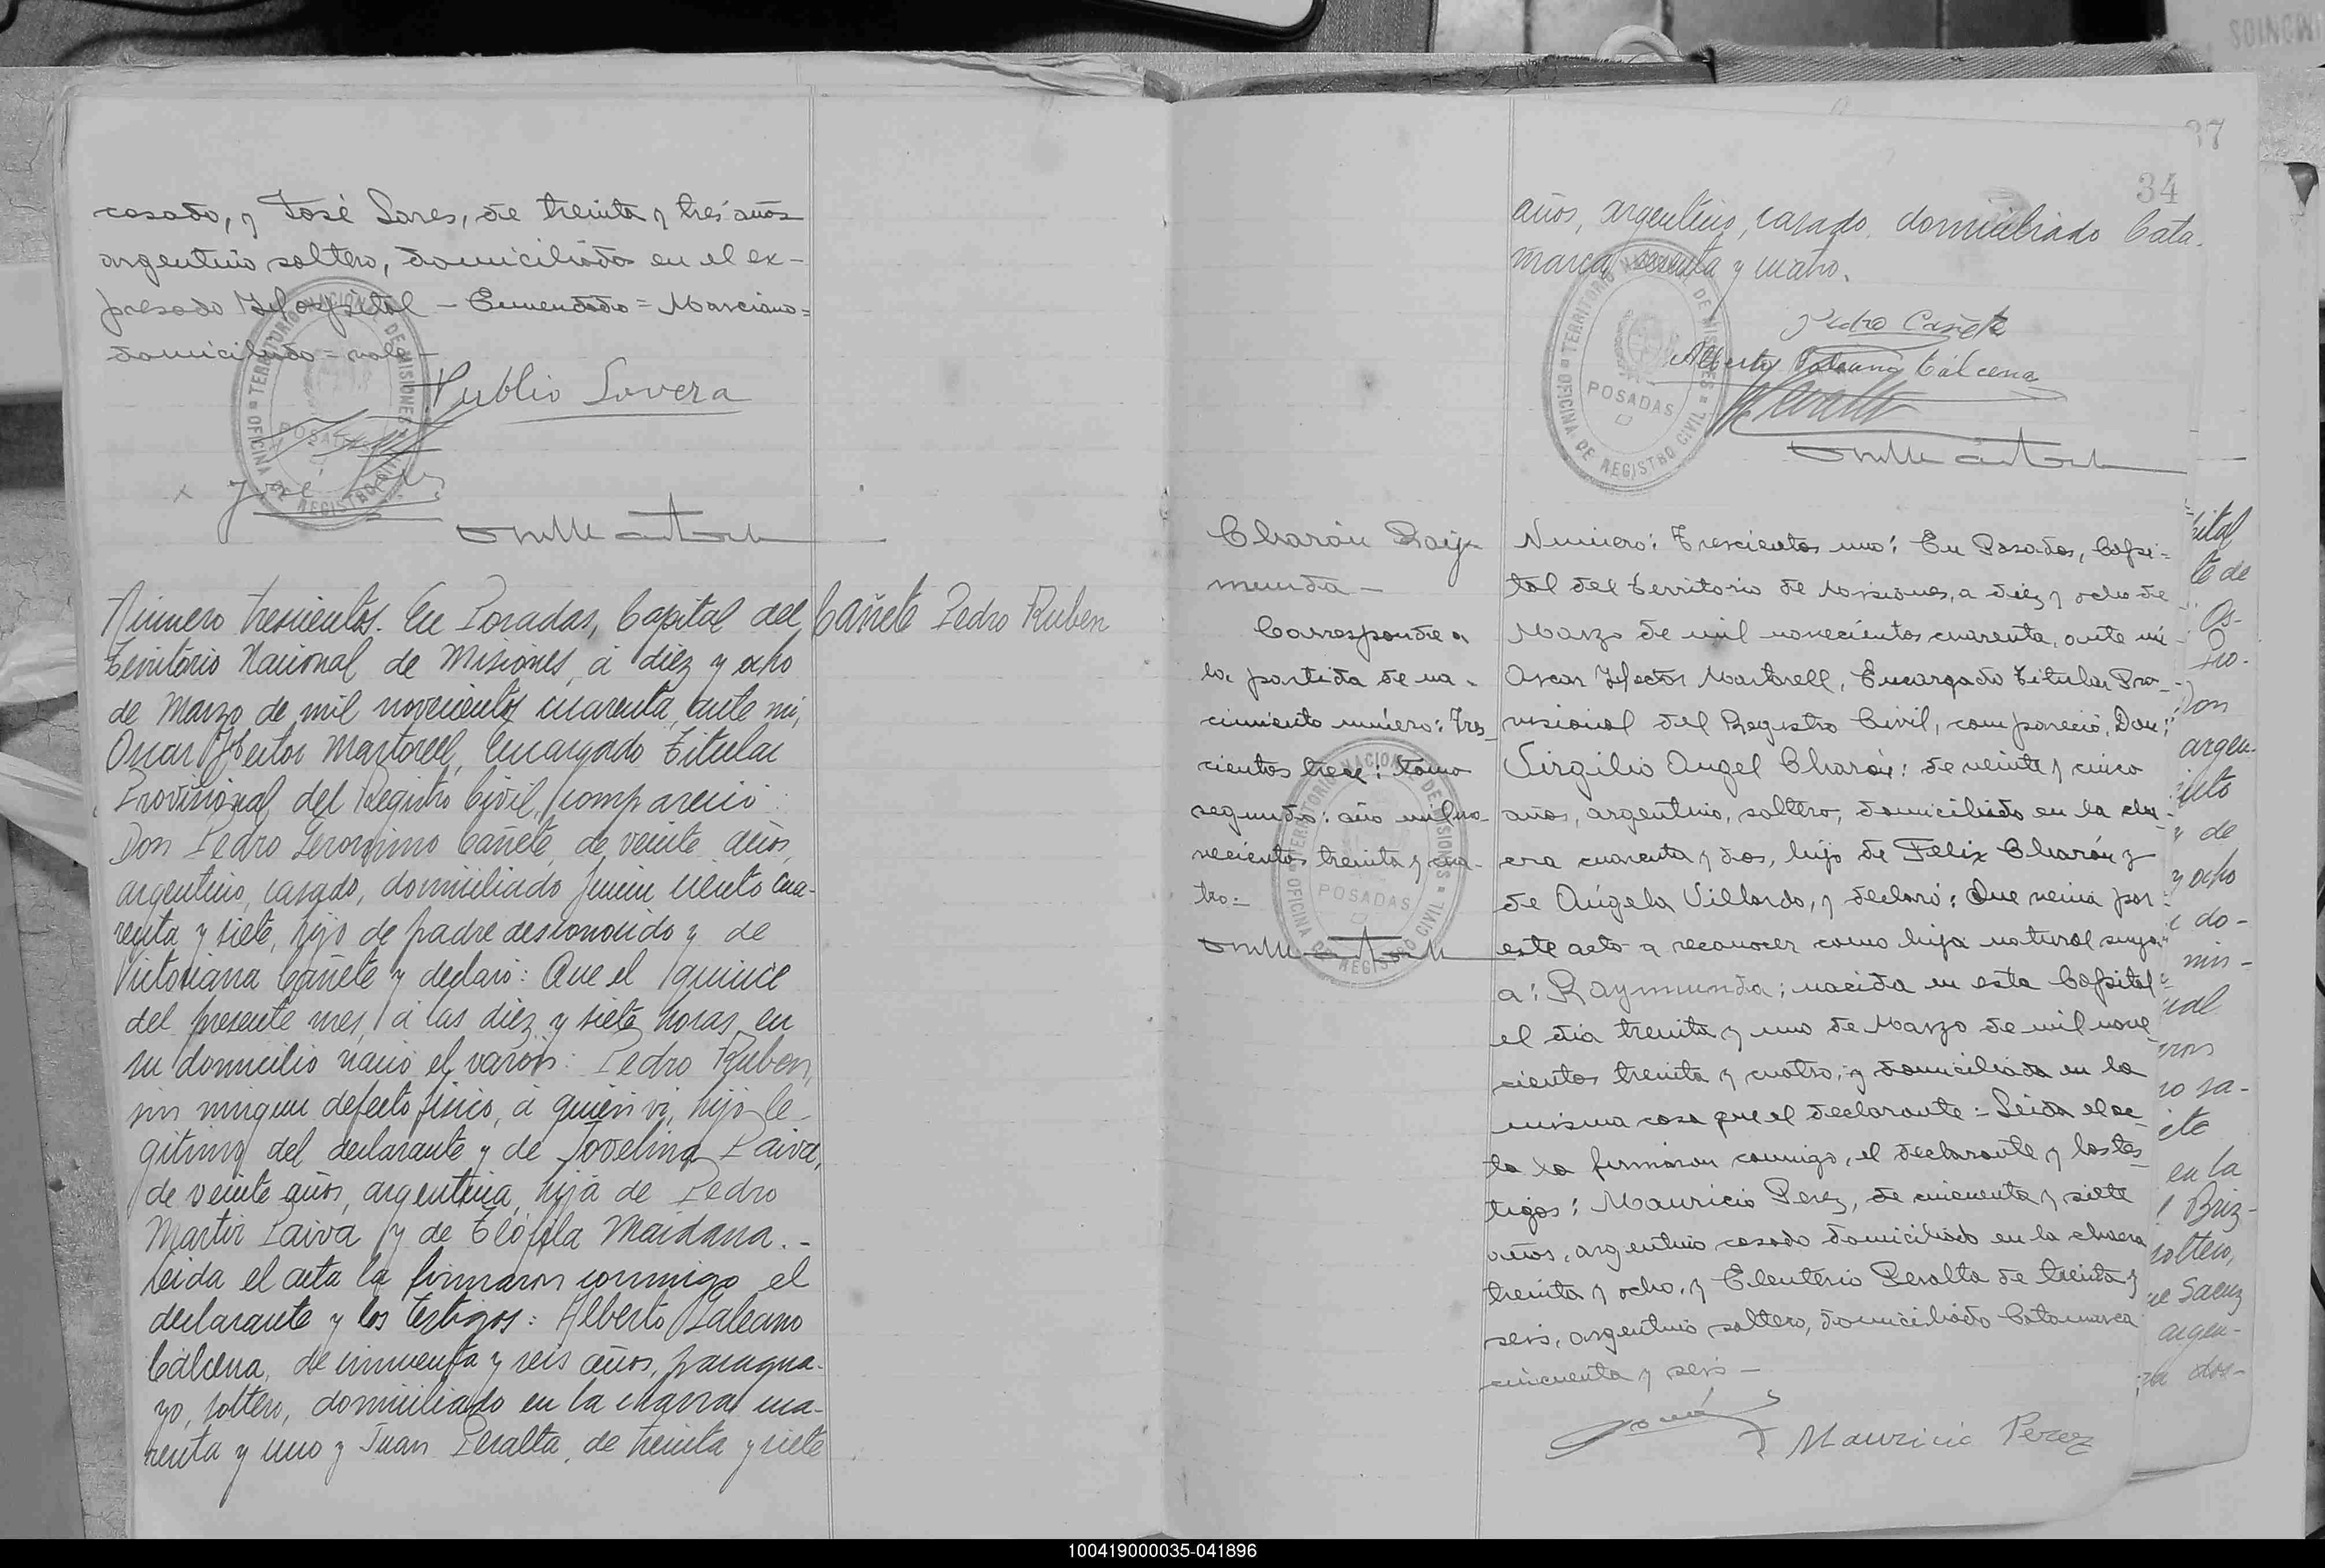 casado, y José Lares, de treinta y tres años
argentino soltero, domiciliados en el ex-
presado Hospital - Enmendado = Marciano =
domiciliado = vale -
Publio Lovera
José
Número trescientos. En Posadas, Capital del
territorio Nacional de Misiones, á diez y ocho
de Marzo de mil novecientos cuarenta, ante mi,
Oscar Hector Martorell, Encargado Titular
Provisional del Registro Civil, compareció:
Don Pedro Geronimo Cañete, de veinte años,
argentino, casado, domiciliado Junin ciento cua-
renta y siete, hijo de padre desconocido y de
Victoriana Cañete y declaró: Que el quince
del presente mes, á las diez y siete horas, en
su domicilio nació el varón: Pedro Ruben,
sin ningun defecto fisico, á quien vi, hijo le-
gitimo del declarante y de Jovelina Paiva,
de veinte años, argentina, hija de Pedro
Martir Paiva y de Teófila Maidana.-
Leida el acta la firmaron conmigo el
declarante y los testigos: Alberto Galeano
Cálcena, de cincuenta y seis años, paragua-
yo, soltero, domiciliado en la chacra cua-
renta y uno y Juan Peralta, de treinta y siete
Cañete Pedro Ruben
37
34
años, argentino, casado, domiciliado Cata-
marca sesenta y cuatro.
TERRITORIO NACIONAL DE MISIONES
POSADAS
OFICINA DE REGISTRO CIVIL
Pedro Cañete
Alberto Galeano Cálcena
Charón Ray-
munda -
Corresponde a
la partida de na-
cimiento número: Tres-
cientos trece: tomo
segundo: año mil no-
vecientos treinta y cua-
tro.-
Número: Trescientos uno: En Posadas, Capi-
tal del territorio de Misiones, a diez y ocho de
Marzo de mil novecientos cuarenta, ante mi
Oscar Hector Martorell, Encargado Titular Pro-
visional del Registro Civil, compareció, Don:
Virgilio Angel Charón: de veinte y cinco
años, argentino, soltero, domiciliado en la cha-
cra cuarenta y dos, hijo de Felix Charón y
de Angela Villordo, y declaró: Que venia por
este acto a reconocer como hija natural suya
a: Raymunda: nacida en esta Capital
el dia treinta y uno de Marzo de mil nove
cientos treinta y cuatro, y domiciliada en la
misma casa que el declarante:- Leida el ac-
ta la firmaron conmigo, el declarante y los tes-
tigos: Mauricio Perez, de cincuenta y siete
años, argentino casado domiciliado en la chacra
treinta y ocho, y Eleuterio Peralta de treinta y
seis, argentino soltero, domiciliado Catamarca
cincuenta y seis -
Mauricio Perez
100419000035-041896